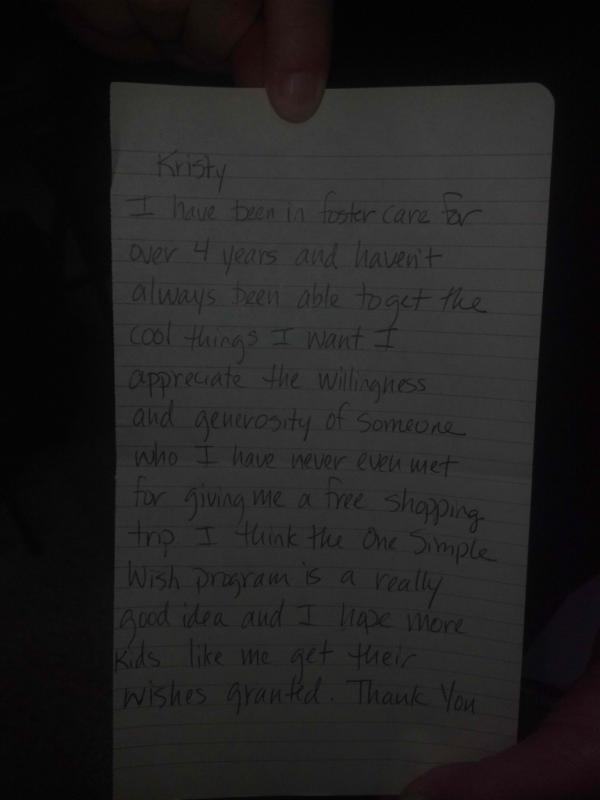 Kristy
I have been in foster care for
over 4 years and haven't
always been able to get the
cool things I want. I
appreciate the willingness
and generosity of someone
who I have never even met
for giving me a free shopping
trip. I think the One Simple
Wish program is a really
good idea and I hope more
kids like me get their
wishes granted. Thank You